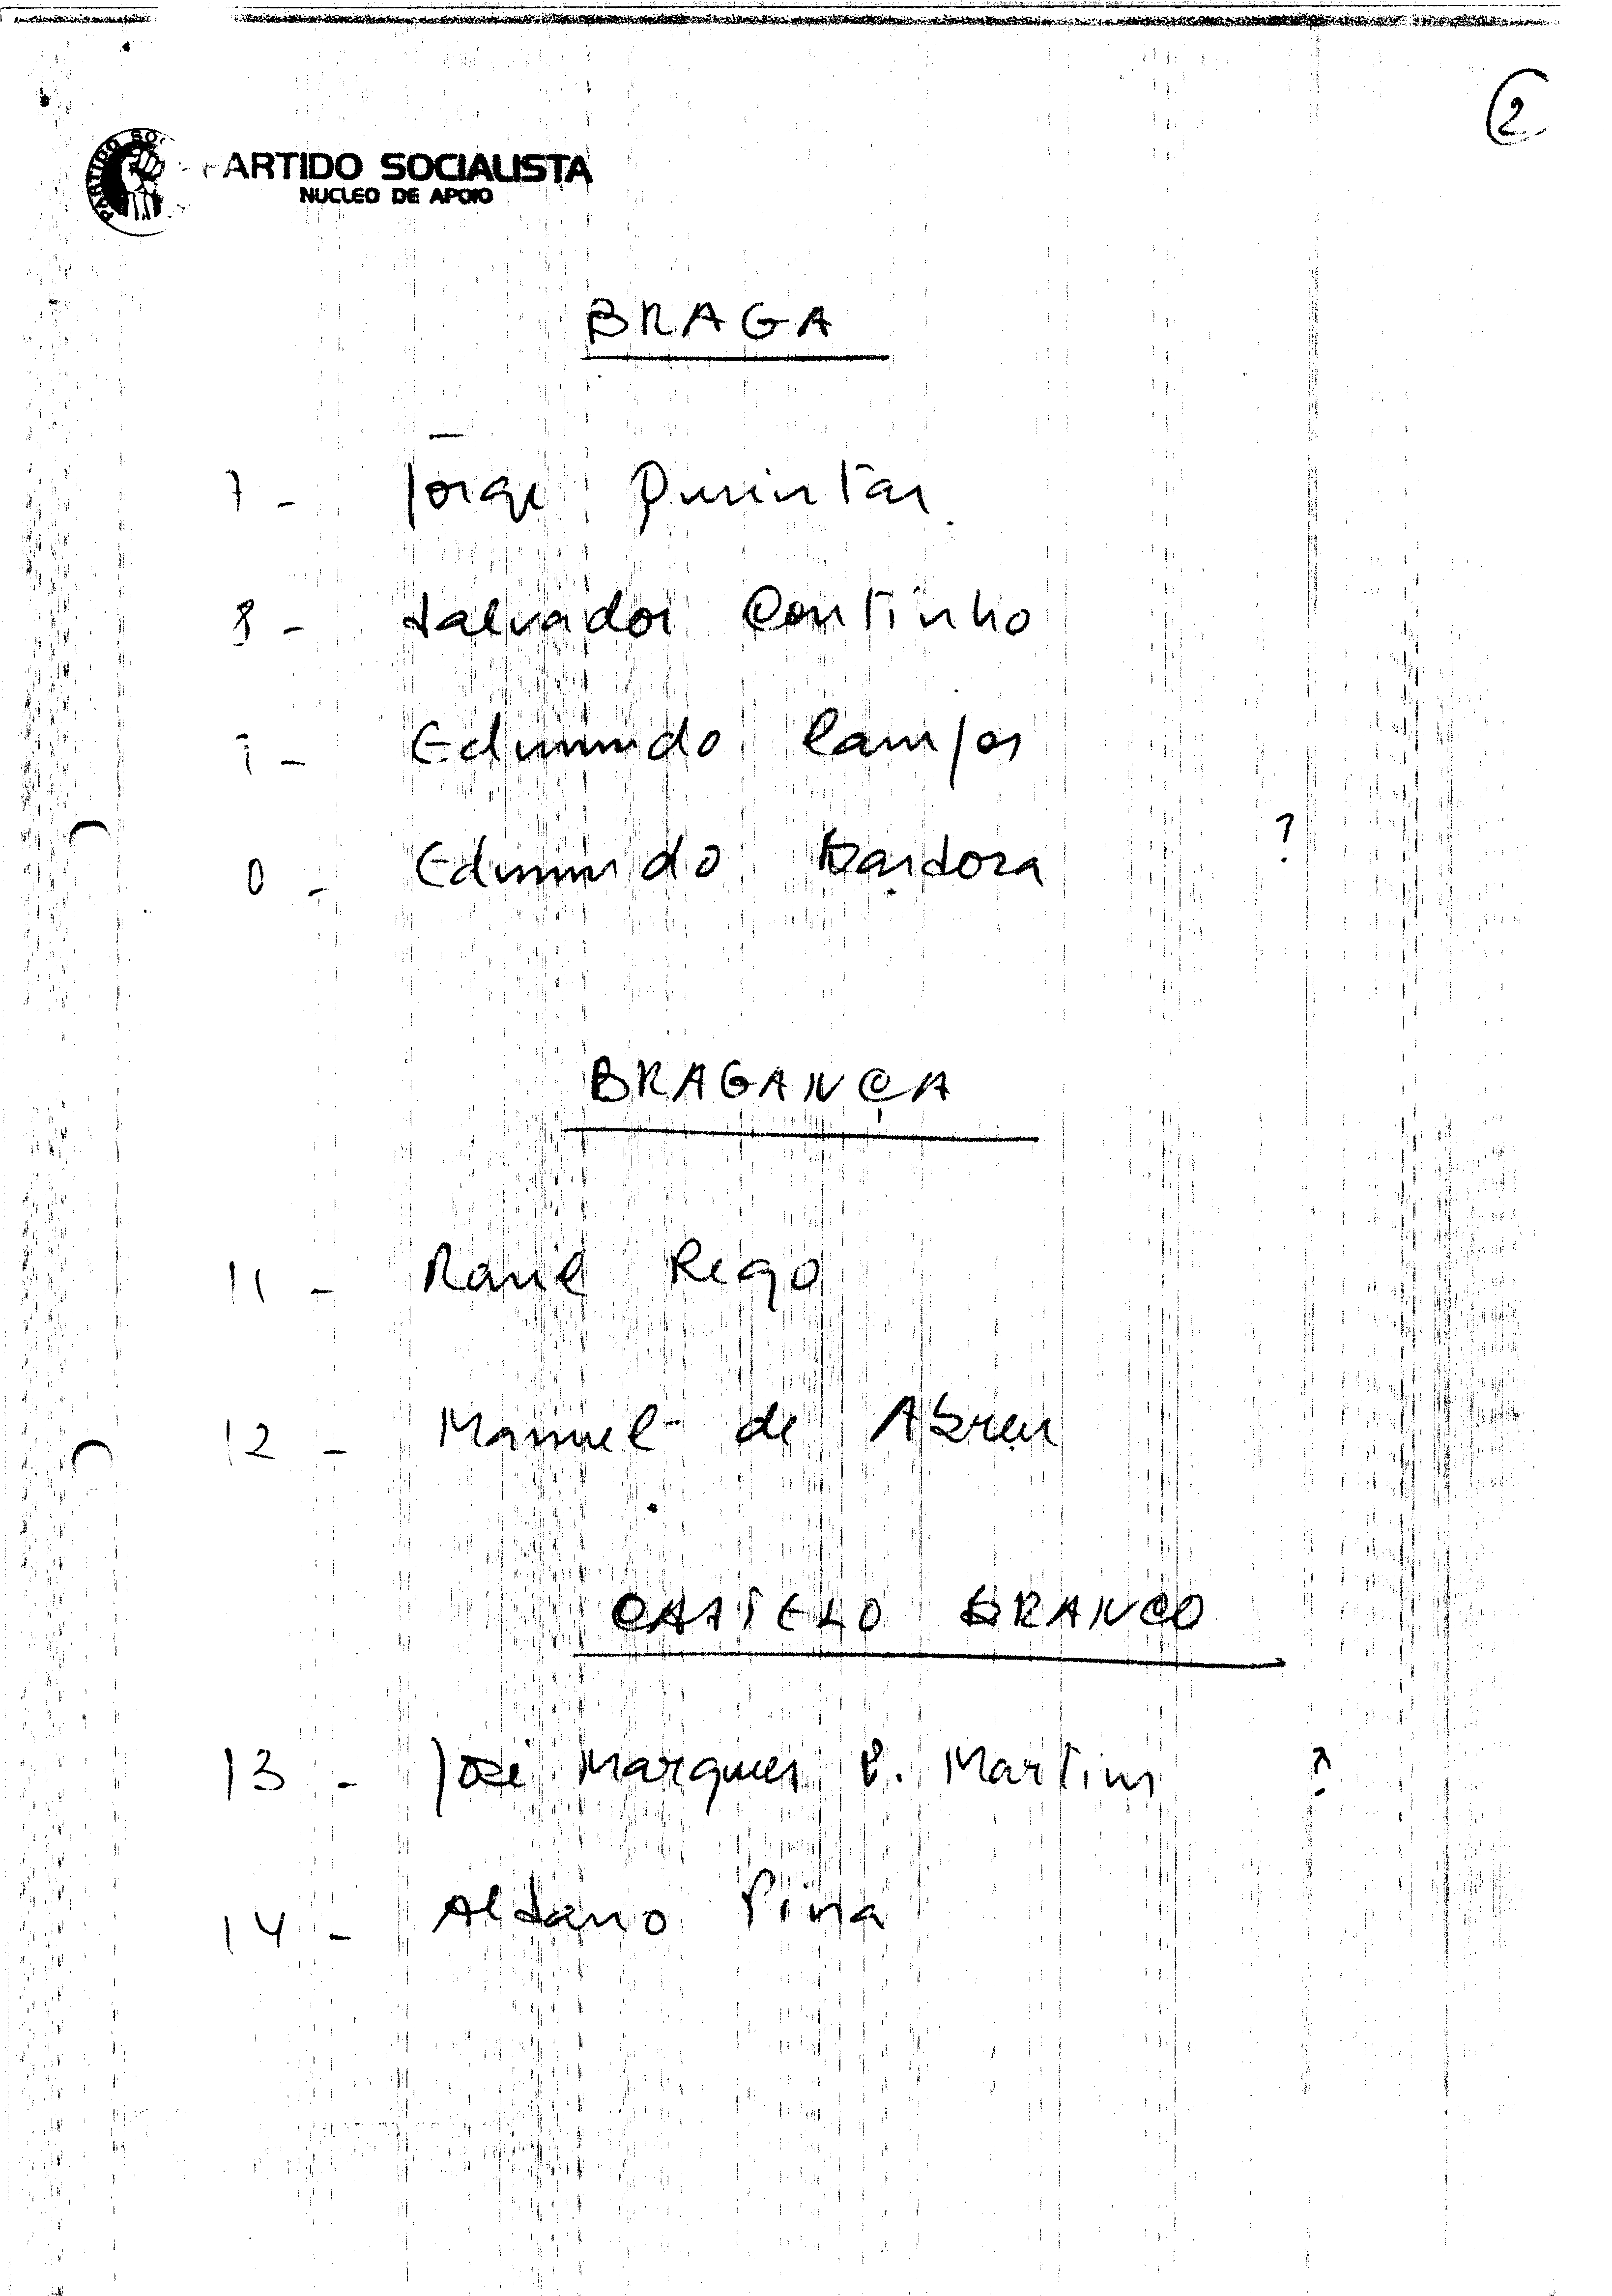 2
PARTIDO SOCIALISTA
NUCLEO DE APOIO
BRAGA
7 - Jorge Quintas
8 - Salvador Coutinho
9 - Edmundo Campos
0 - Edmundo Barbosa ?
BRAGANÇA
11 - Raul Rego
12 - Manuel de Abreu
CASTELO BRANCO
13 - José Marques C. Martins ?
14 - Albano Pina